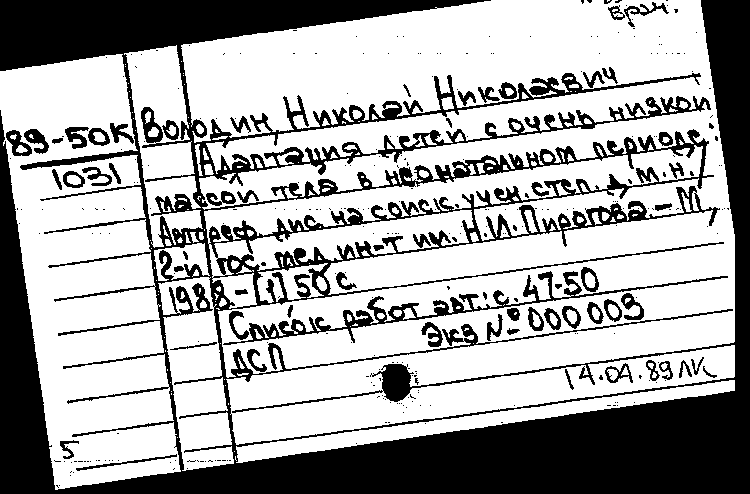 врач.
89-50К Володин, Николай Николаевич
1031 Адаптация детей с очень низкой
массой тела в неонатальном периоде:
Автореф. дис. на соиск. учен. степ. д. м. н. /
2-й гос. мед. ин-т им. Н.И. Пирогова. – М,
1988. – [1] 50 с.
Список работ авт.: с. 47-50
ДСП Экз № 000 003
14.04.89 ЛК
5